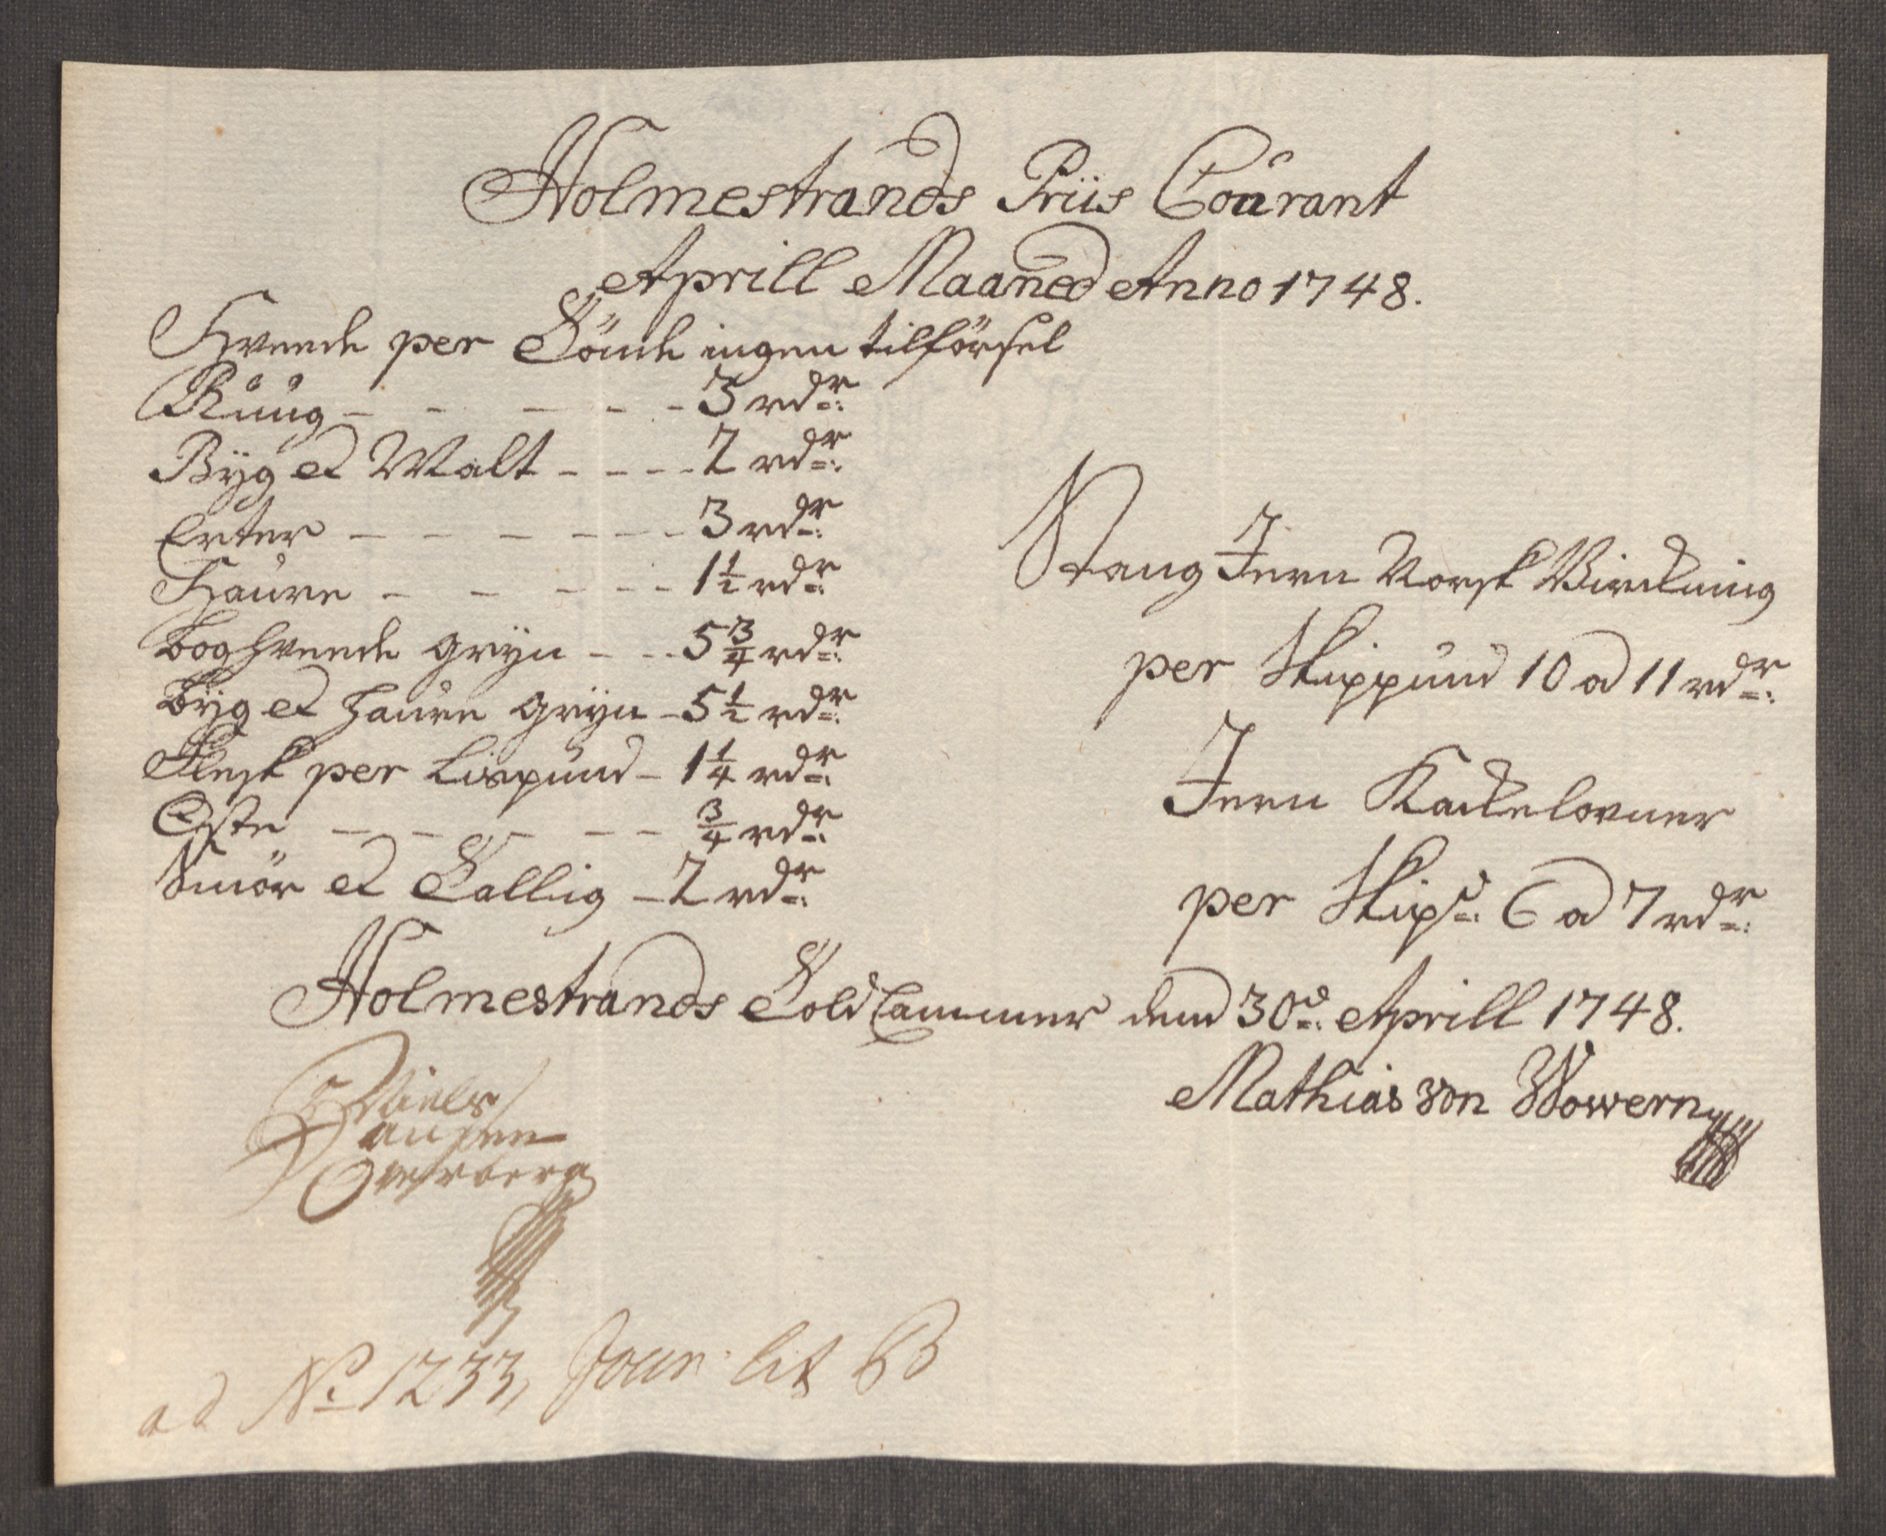 Holmestrands Priis Courant
Aprill Maaned Anno 1748.
Hveede per Tönde ingen tilförsel
Ruug - - - - - 3 rdr:
Byg et Malt - - - - 2 rdr:
Erter - - - - - - - 3 rdr:
Haure - - - - - - 1 1/2 rdr:
Boghveede gryn - - - 5 3/4 rdr:
Byg et Haure gryn - 5 1/2 rdr:
Flesk per Lispund - 1 1/4 rdr:
Oste - - - - - 3/4 rdr:
Smör et Tallig - 2 rdr:
Stang Jern Norsk Virckning
per Skippund 10 a 11 rdr:
Jern Kackelovner
per Skipd: 6 a 7 rdr:
Holmestrands Told Cammer dend 30d: Aprill 1748.
Mathias von Wowern
Niels
Overberg
ad No 1233, Jour: lit B